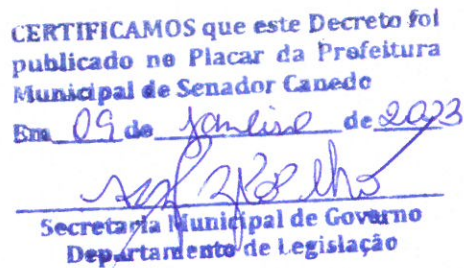 CERTIFICAMOS que este Decreto foi
publicado no Placar da Prefeitura
Municipal de Senador Canedo
Em 09 de Janeiro de 2023
Secretaria Municipal de Governo
Departamento de Legislação